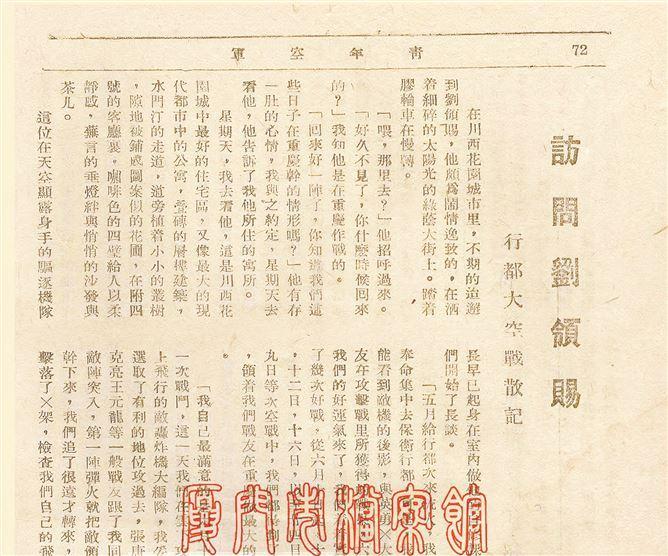 青年空軍
72
訪問劉領賜
行都大空戰散記
在川西花園城市里,不期的
到劉領賜,他頗爲閒情逸致的,在洒
着細碎的太陽光的綠蔭大街上。踏着
膠輪車在慢轉。
「喂,那里去?」他招呼過來。
「好久不見了,你什麽時候回來
的?」我知他是在重慶作戰的。
「回來好一陣了,你知道我們這
些日子在重慶幹的情形嗎?」他有存
一肚的心情,我與之約定,星期天去
看他,他告訴了我他所住的寓所。
星期天,我去看他,這是川西花
園城中最好的住宅區,又像最大的現
代都市中的公寓,疊磚的層樓建築,
水門汀的走道,道旁植着小小的叢樹
,隙地被鋪成圖案似的花圃,在附四
號的客廳裏。咖啡色的四壁給人以柔
靜感,無言的垂燈絆與悄悄的沙發與
茶几。
這位在天空顯露身手的驅逐機隊
長早已起身在室內做
們開始了長談。
「五月給行都次來 我
奉命集中去保衛行都
能看到敵機的後影,與英勇×大
友在攻擊戰里所獲得
我們的好運氣來了,我
了幾次好戰,從六月
,十二日,十六日,
九日等次空戰中,我們都
,領着我們戰友在重 最大的
。
「我自己最滿意的
一次戰鬥,這一天我們在
上飛行的敵轟炸機大編隊,我
選取了有利的地位攻過去,張唐
克亮王元龍等一般戰友跟了我同
敵陣突入,第一陣彈火就把敵領
幹下來,我們追了很遠才轉來,
擊落了×架,檢查我們自己的飛
廈門市檔案館